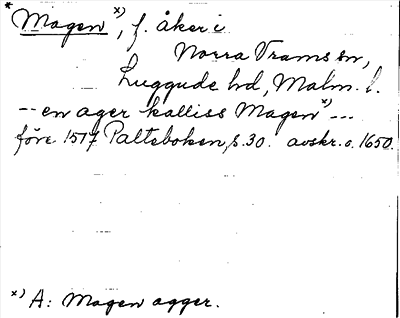 * Magen x), f. åker i
Norra Vrams sn,
Luggude hd, Malm. l.
-- en ager kalliss Magen x) ---
före 1517 Paltsboken, s. 30. avskr. o. 1650.
x) A: Magen agger.